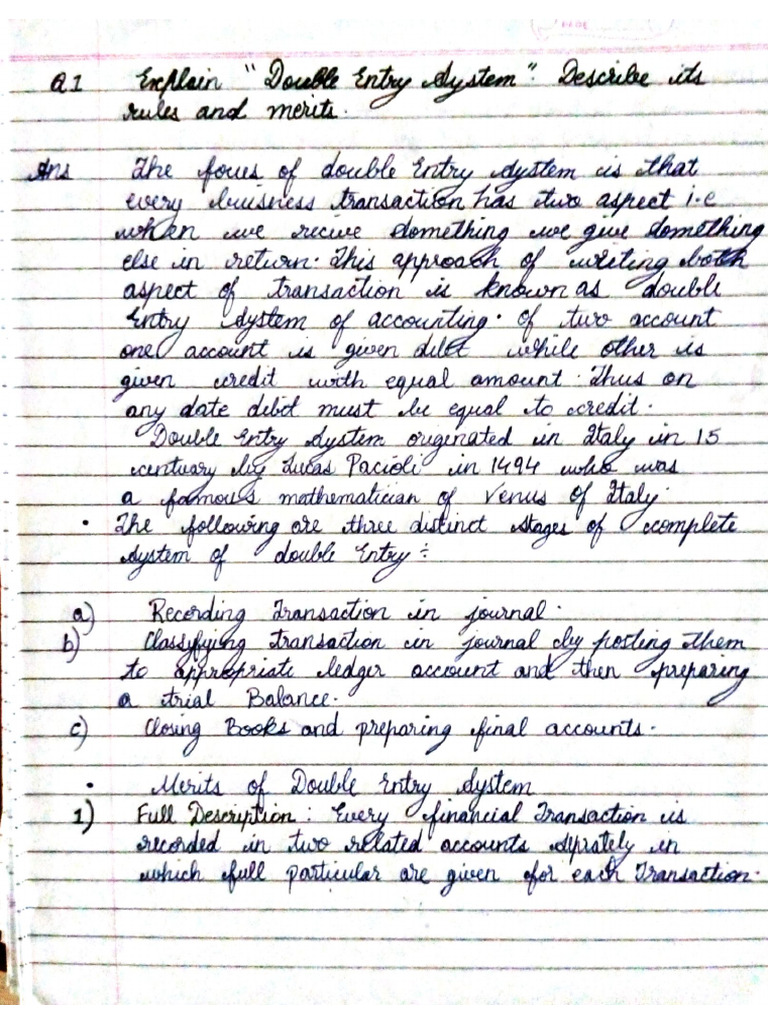 Q1 Explain "Double Entry System". Describe its
rules and merits.
Ans The focus of double Entry system is that
every buisness transaction has two aspect i.e
when we recive something we give something
else in return. This approach of writing both
aspect of transaction is known as double
Entry system of accounting. Of two account
one account is given debt while other is
given credit with equal amount. Thus on
any date debit must be equal to credit.
Double Entry system origenated in Italy in 15
centuary by Lucas Pacioli in 1494 who was
a famous mathematician of Venus of Italy.
• The following are three distinct stages of complete
system of double Entry :-
a) Recording Transaction in journal.
b) Classifying transaction in journal by posting them
to appropriate ledger account and then preparing
a trial Balance.
c) Closing Books and preparing final accounts.
• Merits of Double Entry system
1) Full Description : Every financial Transaction is
recorded in two related accounts seprately in
which full particular are given for each Transaction.